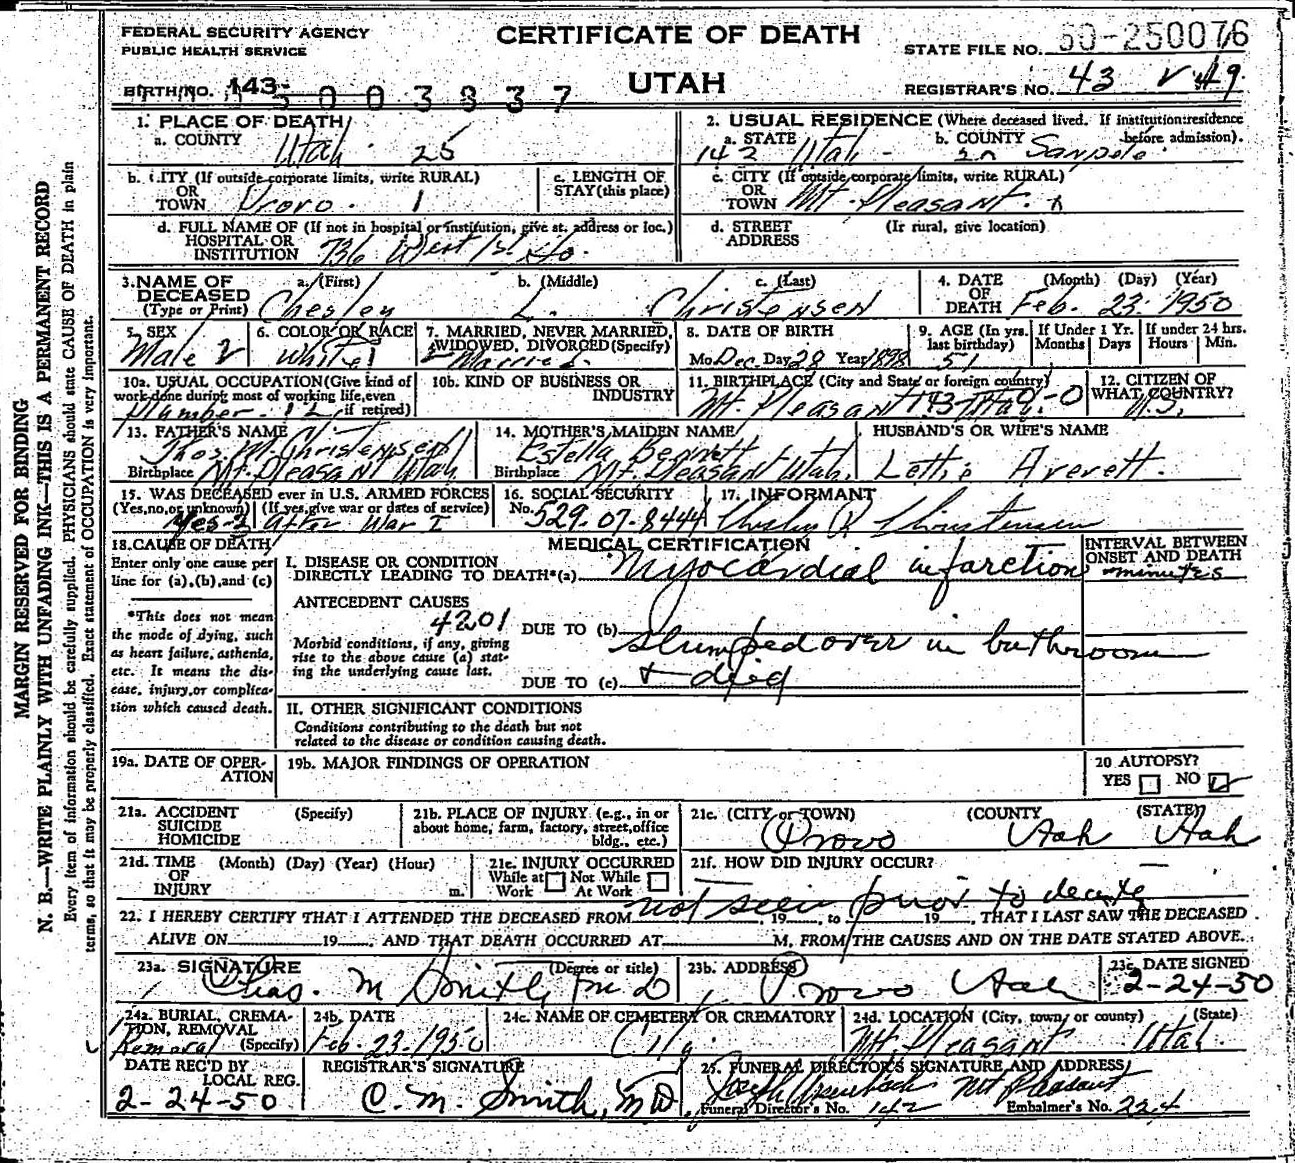 FEDERAL SECURITY AGENCY
PUBLIC HEALTH SERVICE
CERTIFICATE OF DEATH
UTAH
STATE FILE NO. 50-250076
REGISTRAR'S NO. 43 V 49
BIRTH NO. 143-
5003837
1. PLACE OF DEATH
a. COUNTY Utah 25
2. USUAL RESIDENCE (Where deceased lived. If institution:residence before admission).
a. STATE 142 Utah - b. COUNTY 20 Sanpete
b. CITY (If outside corporate limits, write RURAL) OR TOWN Provo. 1
c. LENGTH OF STAY (this place)
c. CITY (If outside corporate limits, write RURAL) OR TOWN Mt. Pleasant.
d. FULL NAME OF (If not in hospital or institution, give st. address or loc.) HOSPITAL OR INSTITUTION 736 West 1st No.
d. STREET ADDRESS (If rural, give location)
3. NAME OF DECEASED (Type or Print) a. (First) Chesley b. (Middle) L. c. (Last) Christensen
4. DATE OF DEATH (Month) (Day) (Year) Feb. 23. 1950
5. SEX Male
6. COLOR OR RACE White 1
7. MARRIED, NEVER MARRIED, WIDOWED, DIVORCED (Specify) Married
8. DATE OF BIRTH Mo. Dec. Day 28 Year 1898
9. AGE (In yrs. last birthday) 51
If Under 1 Yr. Months Days
If under 24 hrs. Hours Min.
10a. USUAL OCCUPATION (Give kind of work done during most of working life, even if retired) Plumber.
10b. KIND OF BUSINESS OR INDUSTRY
11. BIRTHPLACE (City and State or foreign country) Mt. Pleasant 143 Utah
12. CITIZEN OF WHAT COUNTRY? U.S.
13. FATHER'S NAME Thos. M. Christensen
Birthplace Mt. Pleasant Utah
14. MOTHER'S MAIDEN NAME Estella Bennett
Birthplace Mt. Pleasant Utah.
HUSBAND'S OR WIFE'S NAME
Lettie Averett.
15. WAS DECEASED ever in U.S. ARMED FORCES (Yes, no, or unknown) (If yes, give war or dates of service)
Yes-3 After War I
16. SOCIAL SECURITY No. 529-07-8444
17. INFORMANT
Christensen
18. CAUSE OF DEATH
Enter only one cause per line for (a), (b), and (c)
*This does not mean the mode of dying, such as heart failure, asthenia, etc. It means the disease, injury, or complication which caused death.
MEDICAL CERTIFICATION
INTERVAL BETWEEN ONSET AND DEATH
I. DISEASE OR CONDITION DIRECTLY LEADING TO DEATH* (a) Myocardial infarction minutes
ANTECEDENT CAUSES
4201
Morbid conditions, if any, giving rise to the above cause (a) stating the underlying cause last.
DUE TO (b) slumped over in bathroom
DUE TO (c) + died
II. OTHER SIGNIFICANT CONDITIONS
Conditions contributing to the death but not related to the disease or condition causing death.
19a. DATE OF OPERATION
19b. MAJOR FINDINGS OF OPERATION
20 AUTOPSY?
YES NO
21a. ACCIDENT SUICIDE HOMICIDE (Specify)
21b. PLACE OF INJURY (e.g., in or about home, farm, factory, street, office bldg., etc.)
21c. (CITY or TOWN) (COUNTY) (STATE)
Provo Utah Utah
21d. TIME OF INJURY (Month) (Day) (Year) (Hour) m.
21e. INJURY OCCURRED While at Work Not While At Work
21f. HOW DID INJURY OCCUR?
22. I HEREBY CERTIFY THAT I ATTENDED THE DECEASED FROM not seen prior to death 19 , to 19 , THAT I LAST SAW THE DECEASED
ALIVE ON 19 , AND THAT DEATH OCCURRED AT M, FROM THE CAUSES AND ON THE DATE STATED ABOVE.
23a. SIGNATURE (Degree or title)
Chas. M Smith, M D
23b. ADDRESS
Provo Utah
23c. DATE SIGNED
2-24-50
24a. BURIAL, CREMATION, REMOVAL (Specify) Removal
24b. DATE Feb. 23. 1950
24c. NAME OF CEMETERY OR CREMATORY
City
24d. LOCATION (City, town, or county) (State)
Mt. Pleasant Utah.
DATE REC'D BY LOCAL REG.
2-24-50
REGISTRAR'S SIGNATURE
C. M. Smith, M D
25. FUNERAL DIRECTOR'S SIGNATURE AND ADDRESS
Joseph Mt Pleasant
Funeral Director's No. 142 Embalmer's No. 224
MARGIN RESERVED FOR BINDING
N. B.—WRITE PLAINLY WITH UNFADING INK—THIS IS A PERMANENT RECORD
Every item of information should be carefully supplied. PHYSICIANS should state CAUSE OF DEATH in plain
terms, so that it may be properly classified. Exact statement of OCCUPATION is very important.